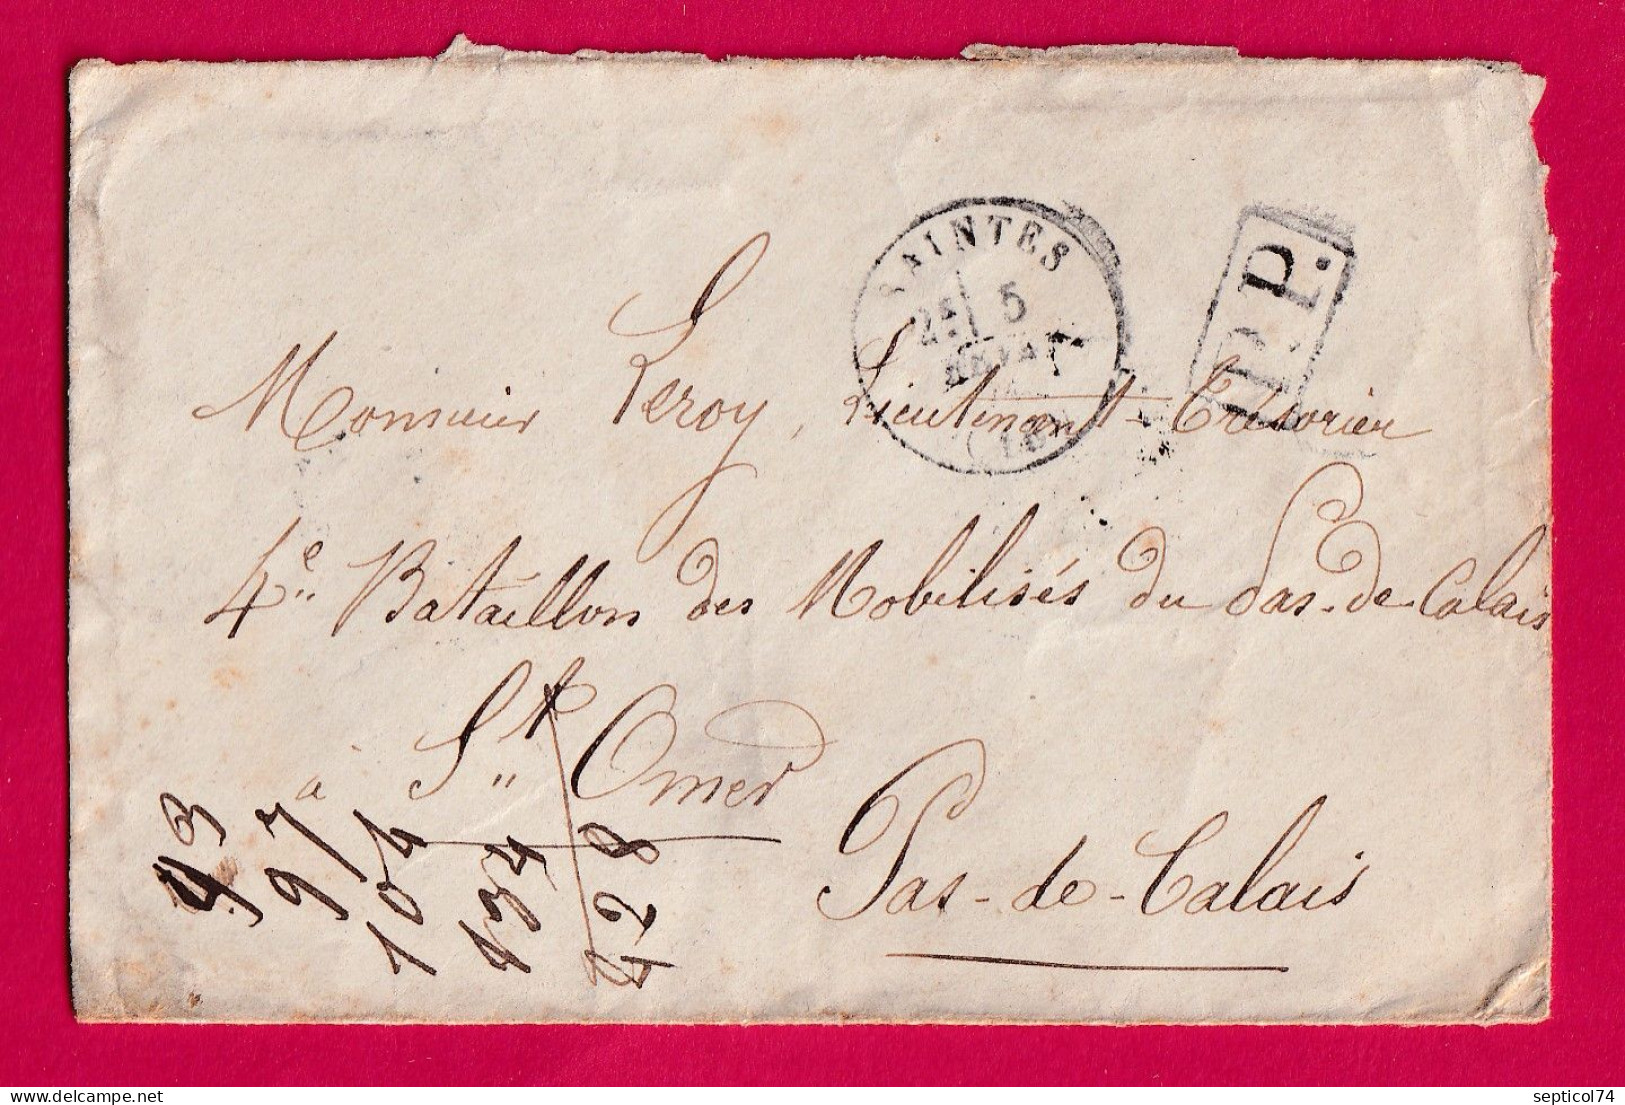 SAINTES
2E 5
P.P.
Monsieur Leroy, Lieutenant-Trésorier
4e Bataillon des Mobilisés du Pas-de-Calais
à St Omer
Pas-de-Calais
93
97
104
134
428
septicol74